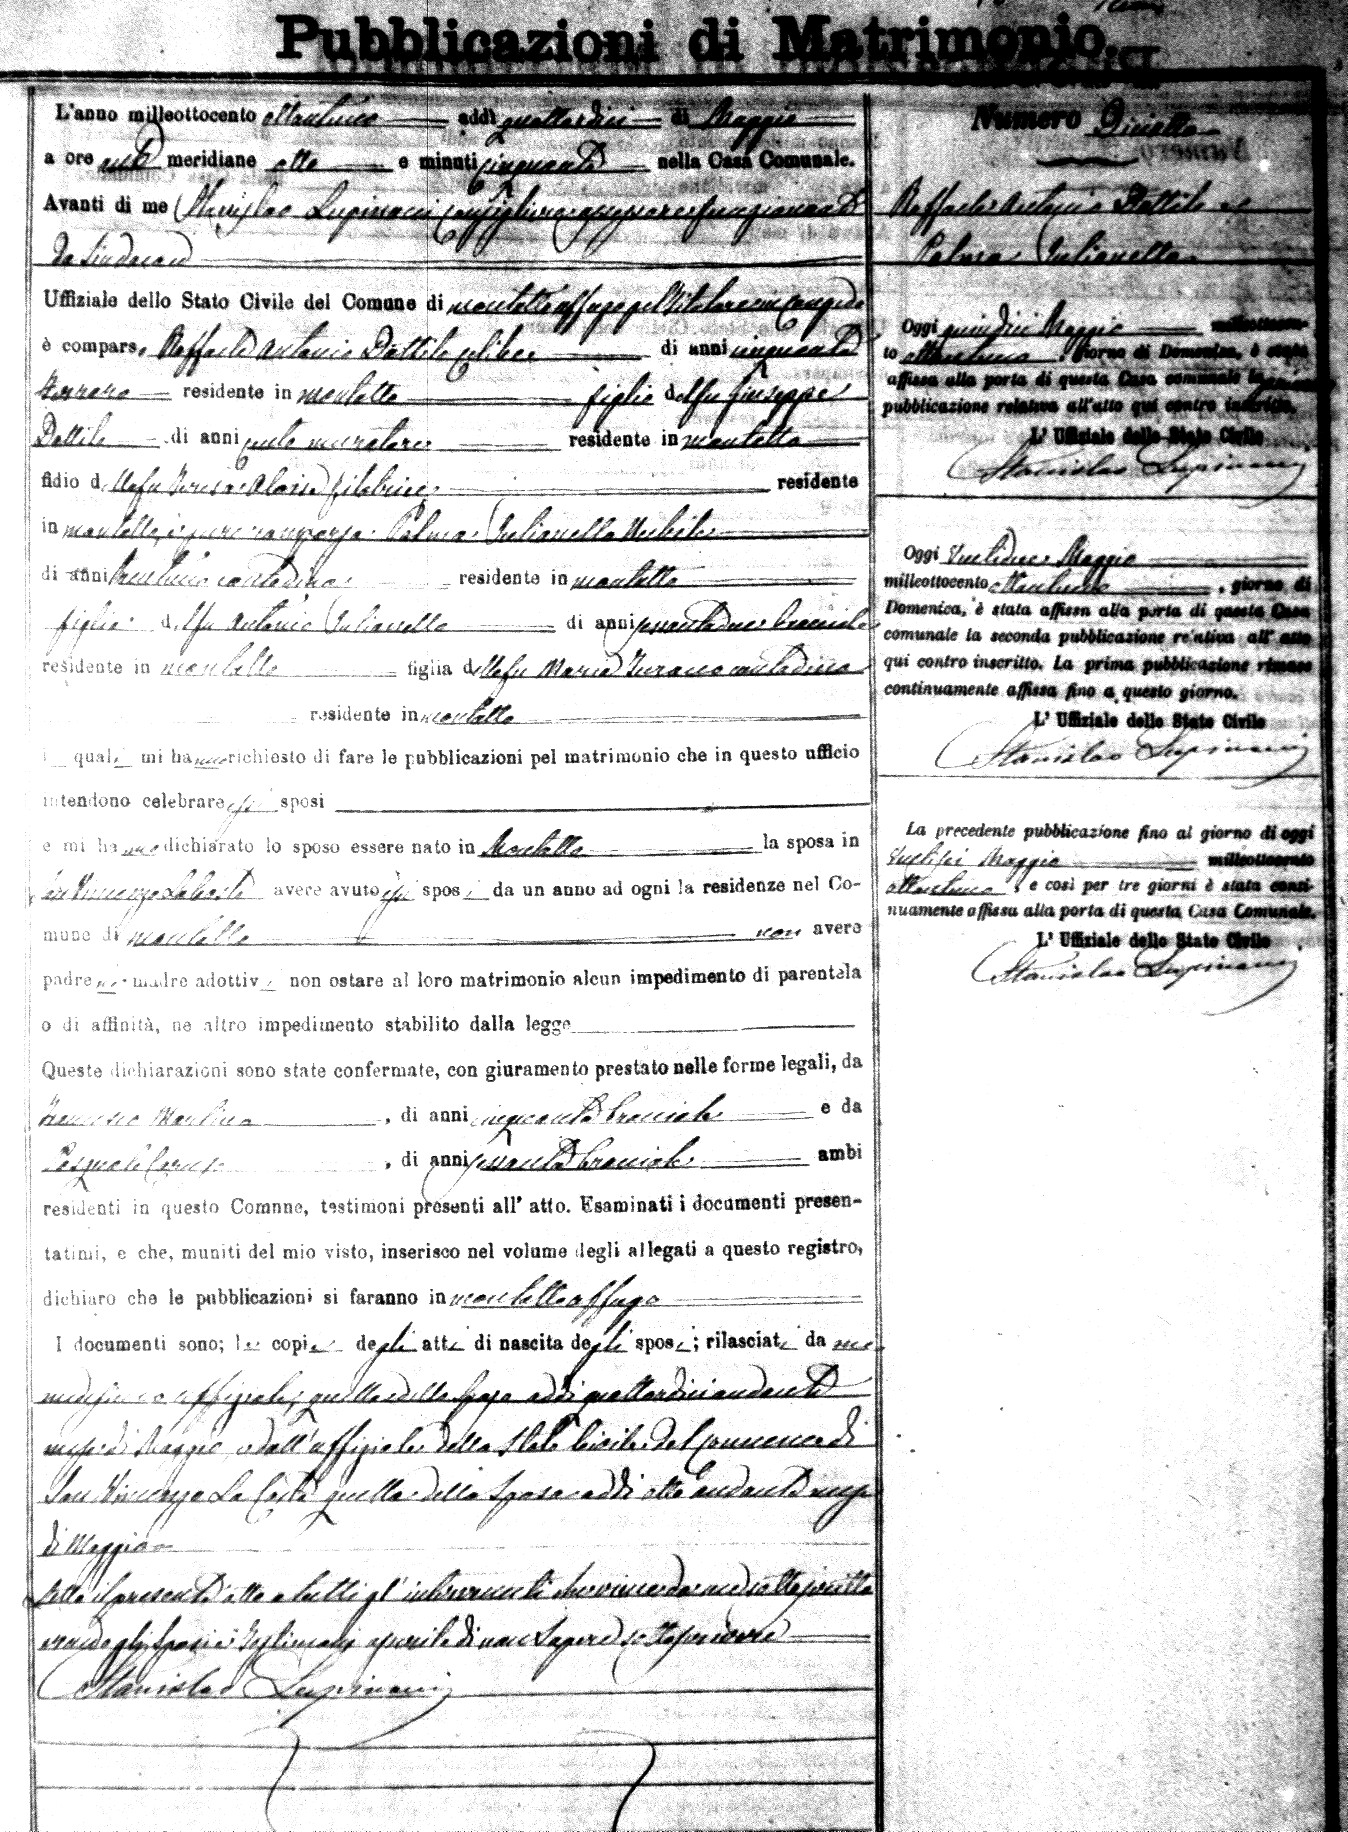 Pubblicazioni di Matrimonio.
L'anno milleottocento ottantuno addì quattordici di Maggio
a ore anti meridiane otto e minuti cinquanta nella Casa Comunale.
Avanti di me Stanislao Lupinacci Consigliere funzionante
da Sindaco
Uffiziale dello Stato Civile del Comune di Montalto Uffugo pel titolare in congedo
è comparso Raffaele Antonio Dattilo celibe di anni cinquanta
residente in Montalto figlio del fu Giuseppe
Dattilo di anni muratore residente in Montalto
fidio della fu Teresa Aloise filatrice residente
in Montalto, è pure comparsa Palma Iulianello Nubile
di anni trentuno contadina residente in Montalto
figlia del fu Antonio Iulianello di anni sessantadue bracciale
residente in Montalto figlia della fu Maria Turano contadina
residente in Montalto
i quali mi hanno richiesto di fare le pubblicazioni pel matrimonio che in questo ufficio
intendono celebrare essi sposi
e mi hanno dichiarato lo sposo essere nato in Montalto la sposa in
San Vincenzo La Costa avere avuto essi sposi da un anno ad ogni la residenze nel Co-
mune di Montalto non avere
padre ne madre adottivi non ostare al loro matrimonio alcun impedimento di parentela
o di affinità, ne altro impedimento stabilito dalla legge
Queste dichiarazioni sono state confermate, con giuramento prestato nelle forme legali, da
Francesco , di anni cinquanta bracciale e da
Pasquale Caruso , di anni sessanta bracciale ambi
residenti in questo Comnne, testimoni presenti all' atto. Esaminati i documenti presen-
tatimi, e che, muniti del mio visto, inserisco nel volume degli allegati a questo registro,
dichiaro che le pubblicazioni si faranno in Montalto Uffugo
I documenti sono; le copie degli atti di nascita degli sposi; rilasciati da me
medesimo uffiziale, quella dello sposo addì quattordici andante
mese di Maggio, e dall'uffiziale dello Stato Civile del Comune di
San Vincenzo La Costa quella della sposa addì otto andante mese
di Maggio
Letto il presente atto a tutti gl'intervenuti che viene da me sottoscritto
avendo gli sposi e i testimoni asserito di non sapere sottoscrivere
Stanislao Lupinacci
Numero Diciotto
Raffaele Antonio Dattilo e
Palma Iulianello
Oggi quindici Maggio milleottocen-
to ottantuno, giorno di Domenica, è stata
affissa alla porta di questa Casa comunale la
pubblicazione relativa all'atto qui contro inscritto.
L' Uffiziale dello Stato Civile
Stanislao Lupinacci
Oggi Ventidue Maggio
milleottocento ottantuno , giorno di
Domenica, è stata affissa alla porta di questa Casa
comunale la seconda pubblicazione relativa all' atto
qui contro inscritto. La prima pubblicazione rimase
continuamente affissa fino a questo giorno.
L' Uffiziale dello Stato Civile
Stanislao Lupinacci
La precedente pubblicazione fino al giorno di oggi
Maggio milleottocento
ottantuno, e così per tre giorni è stata conti-
nuamente affissa alla porta di questa Casa Comunale.
L' Uffiziale dello Stato Civile
Stanislao Lupinacci